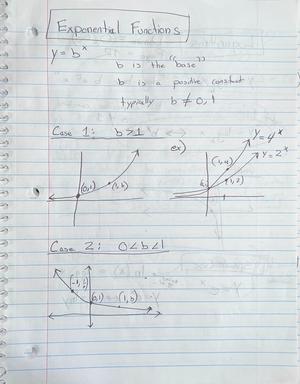 Exponential Functions
y = bˣ
b is the "base"
b is a positive constant
typically b ≠ 0, 1
Case 1: b>1
ex)
y=4ˣ
y=2ˣ
(1,4)
(1,2)
(0,1)
(1,b)
Case 2: 0<b<1
(-1, 1/b)
(0,1)
(1,b)